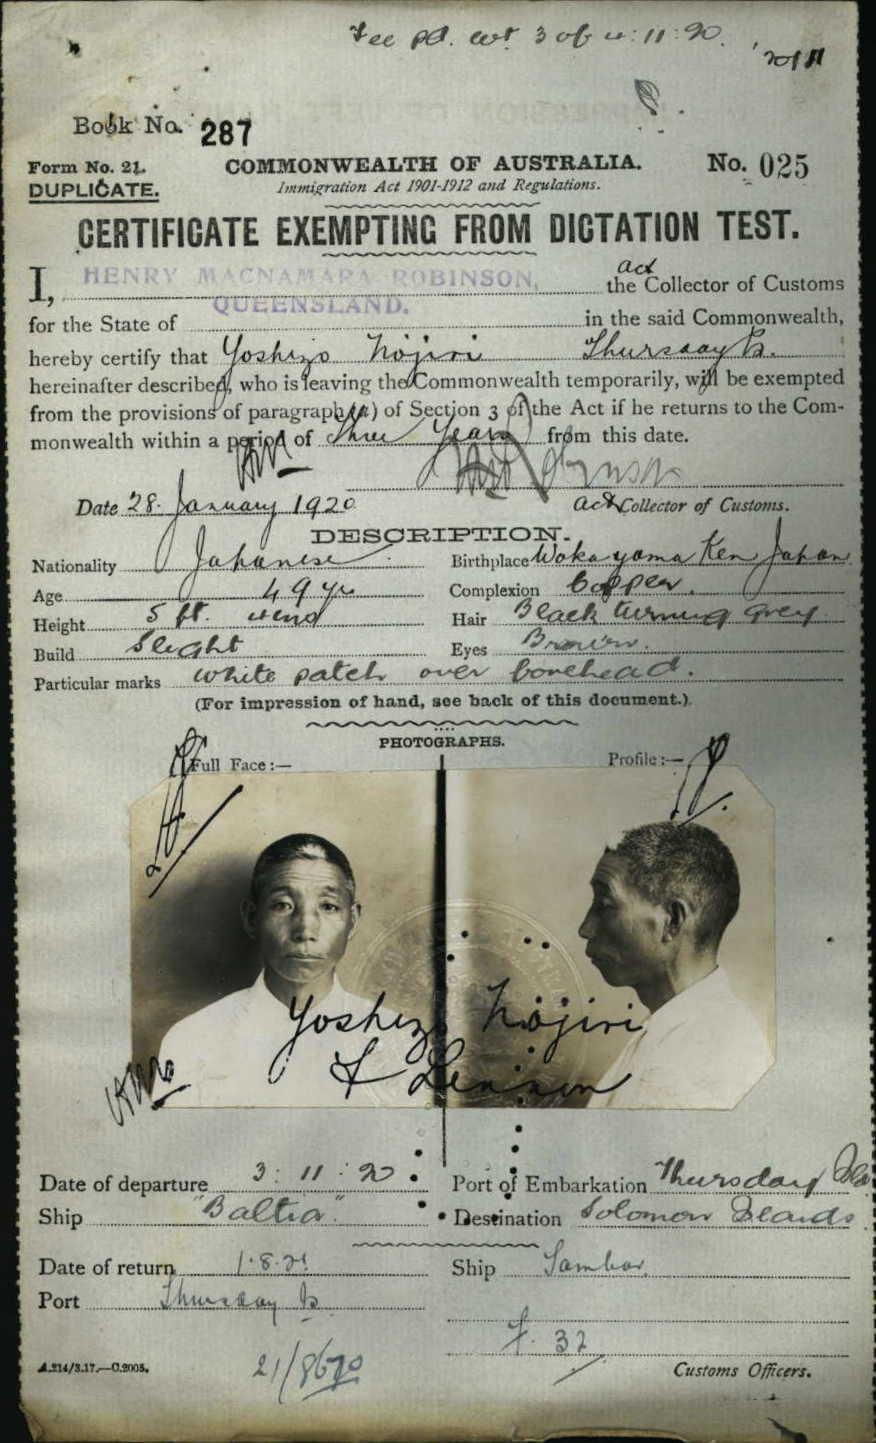 Fee pd. 3 of 4:11:20.
Book No. 287
Form No. 21. COMMONWEALTH OF AUSTRALIA. No. 025
DUPLICATE. Immigration Act 1901-1912 and Regulations.
CERTIFICATE EXEMPTING FROM DICTATION TEST.
I, HENRY MACNAMARA ROBINSON, act the Collector of Customs
for the State of QUEENSLAND. in the said Commonwealth,
hereby certify that Yoshizo Nojiri Thursday Is.
hereinafter described, who is leaving the Commonwealth temporarily, will be exempted
from the provisions of paragraph (a) of Section 3 of the Act if he returns to the Com-
monwealth within a period of three Years from this date.
HM Robinson
Date 28. January 1920 Act Collector of Customs.
DESCRIPTION.
Nationality Japanese Birthplace Wokayama Ken Japan
Age 49 yrs Complexion Copper.
Height 5 ft. Hair Black turning grey
Build Slight Eyes Brown.
Particular marks white patch over forehead.
(For impression of hand, see back of this document.)
PHOTOGRAPHS.
Full Face:— Profile:—
Yoshizo Nojiri
Date of departure 3:11:20 Port of Embarkation Thursday Isla
Ship "Baltia" Destination Solomon Islands.
Date of return 1.8.21 Ship
Port Thursday Is
F. 32
A.214/3.17.—C.2005. 21/8670 Customs Officers.